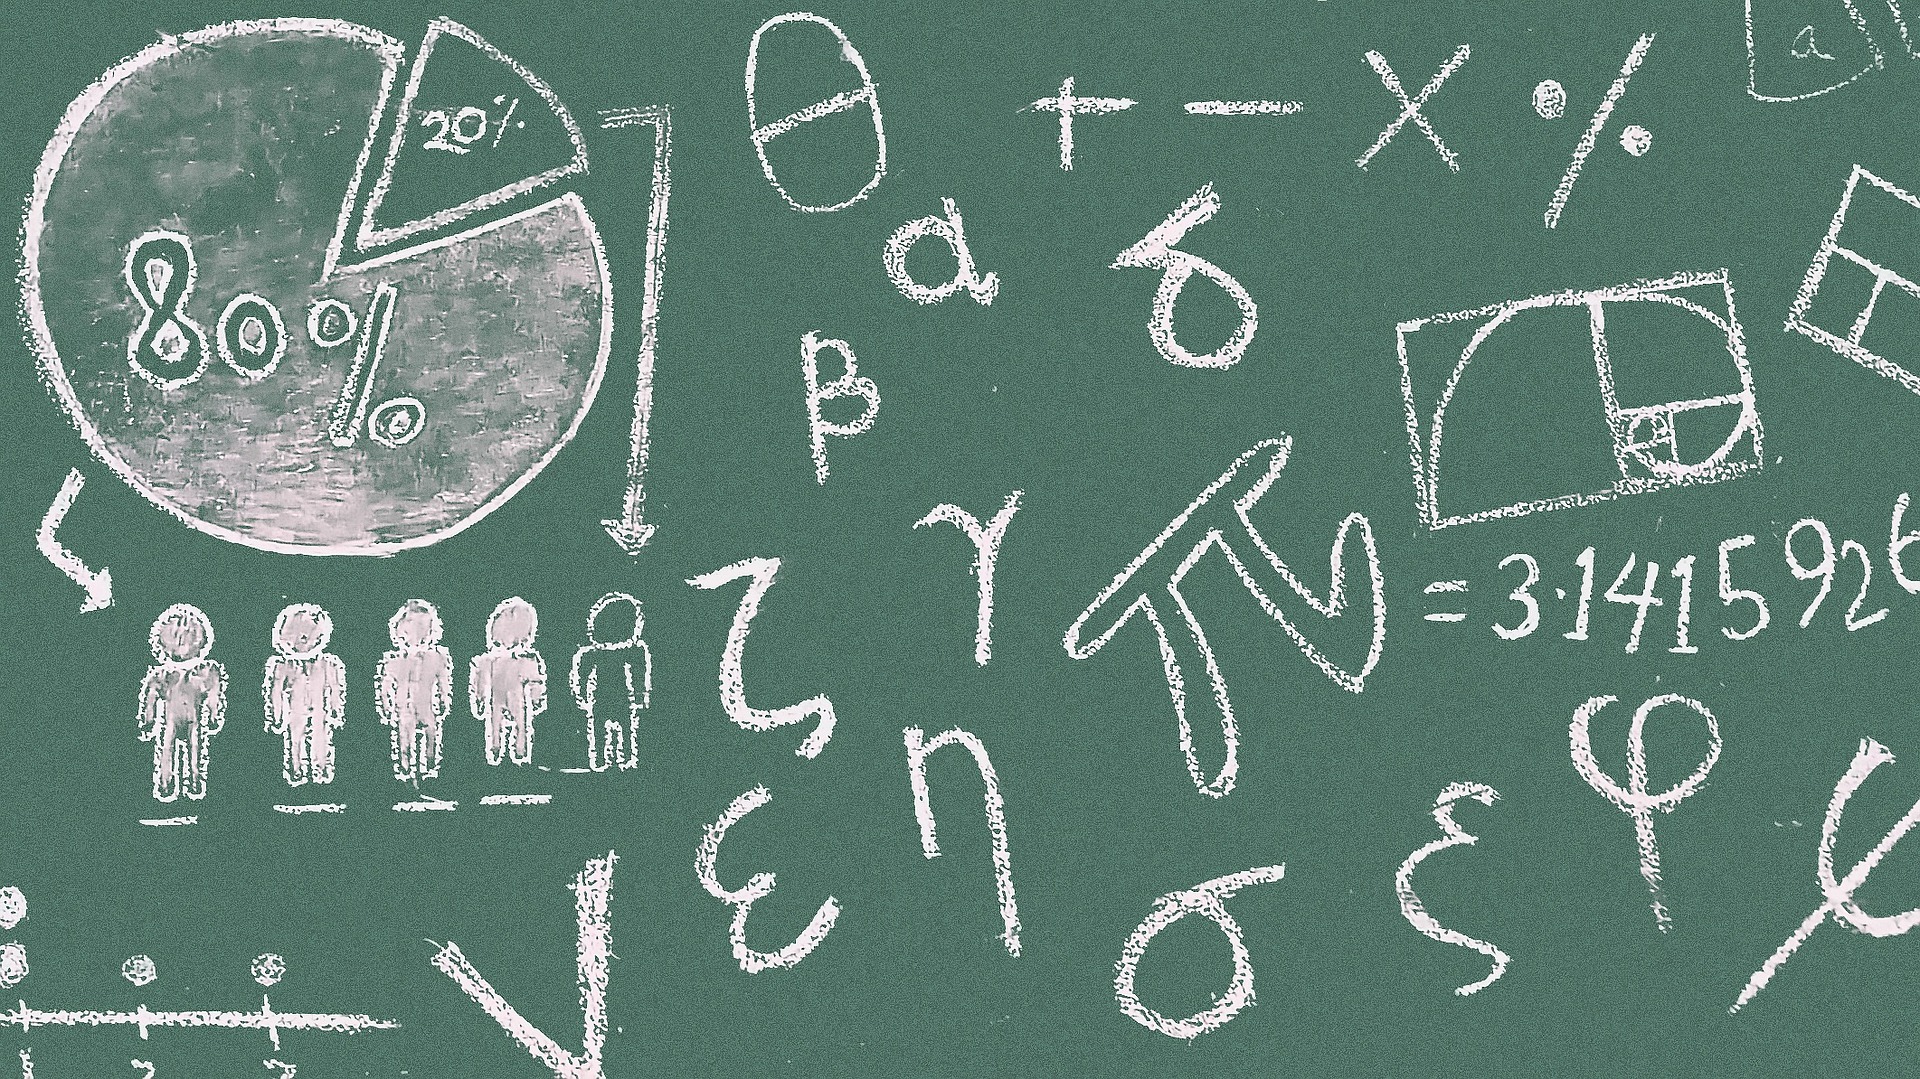 20%
80%
θ
+ − × %
a
α
δ
β
γ
π = 3.1415926
ζ
η
ε
σ
ξ
φ
ψ